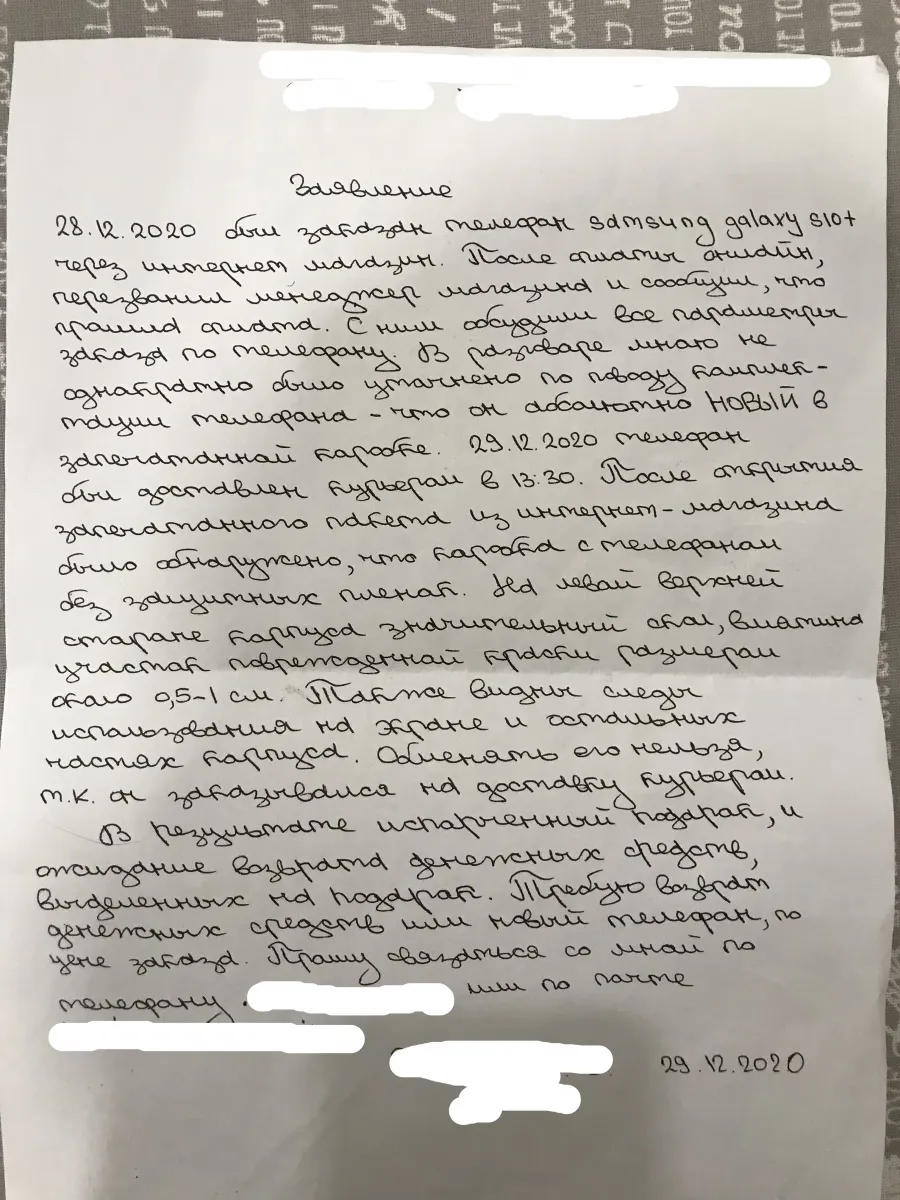 Заявление
28.12.2020 был заказан телефон samsung galaxy s10+
через интернет магазин. После оплаты онлайн,
перезвонил менеджер магазина и сообщил, что
прошла оплата. С ним обсудили все параметры
заказа по телефону. В разговоре мною не
однократно было уточнено по поводу комплек-
тации телефона - что он абсолютно НОВЫЙ в
запечатанной коробке. 29.12.2020 телефон
был доставлен курьером в 13:30. После открытия
запечатанного пакета из интернет-магазина
было обнаружено, что коробка с телефоном
без защитных пленок. На левой верхней
стороне корпуса значительный скол, вмятина
участок поврежденной краски размером
около 0,5-1 см. Также видны следы
использования на экране и остальных
частях корпуса. Обменять его нельзя,
т.к. он заказывался на доставку курьером.
В результате испорченный подарок, и
ожидание возврата денежных средств,
выделенных на подарок. Требую возврат
денежных средств или новый телефон, по
цене заказа. Прошу связаться со мной по
телефону или по почте
29.12.2020